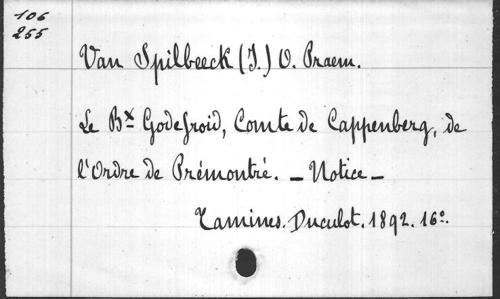 106
255
Van Spilbeeck (J.) O. Praem.
Le Bx Godefroid, Comte de Cappenberg, de
l'Ordre de Prémontré. _ Notice _
Tamines. Duculot. 1892. 16°.